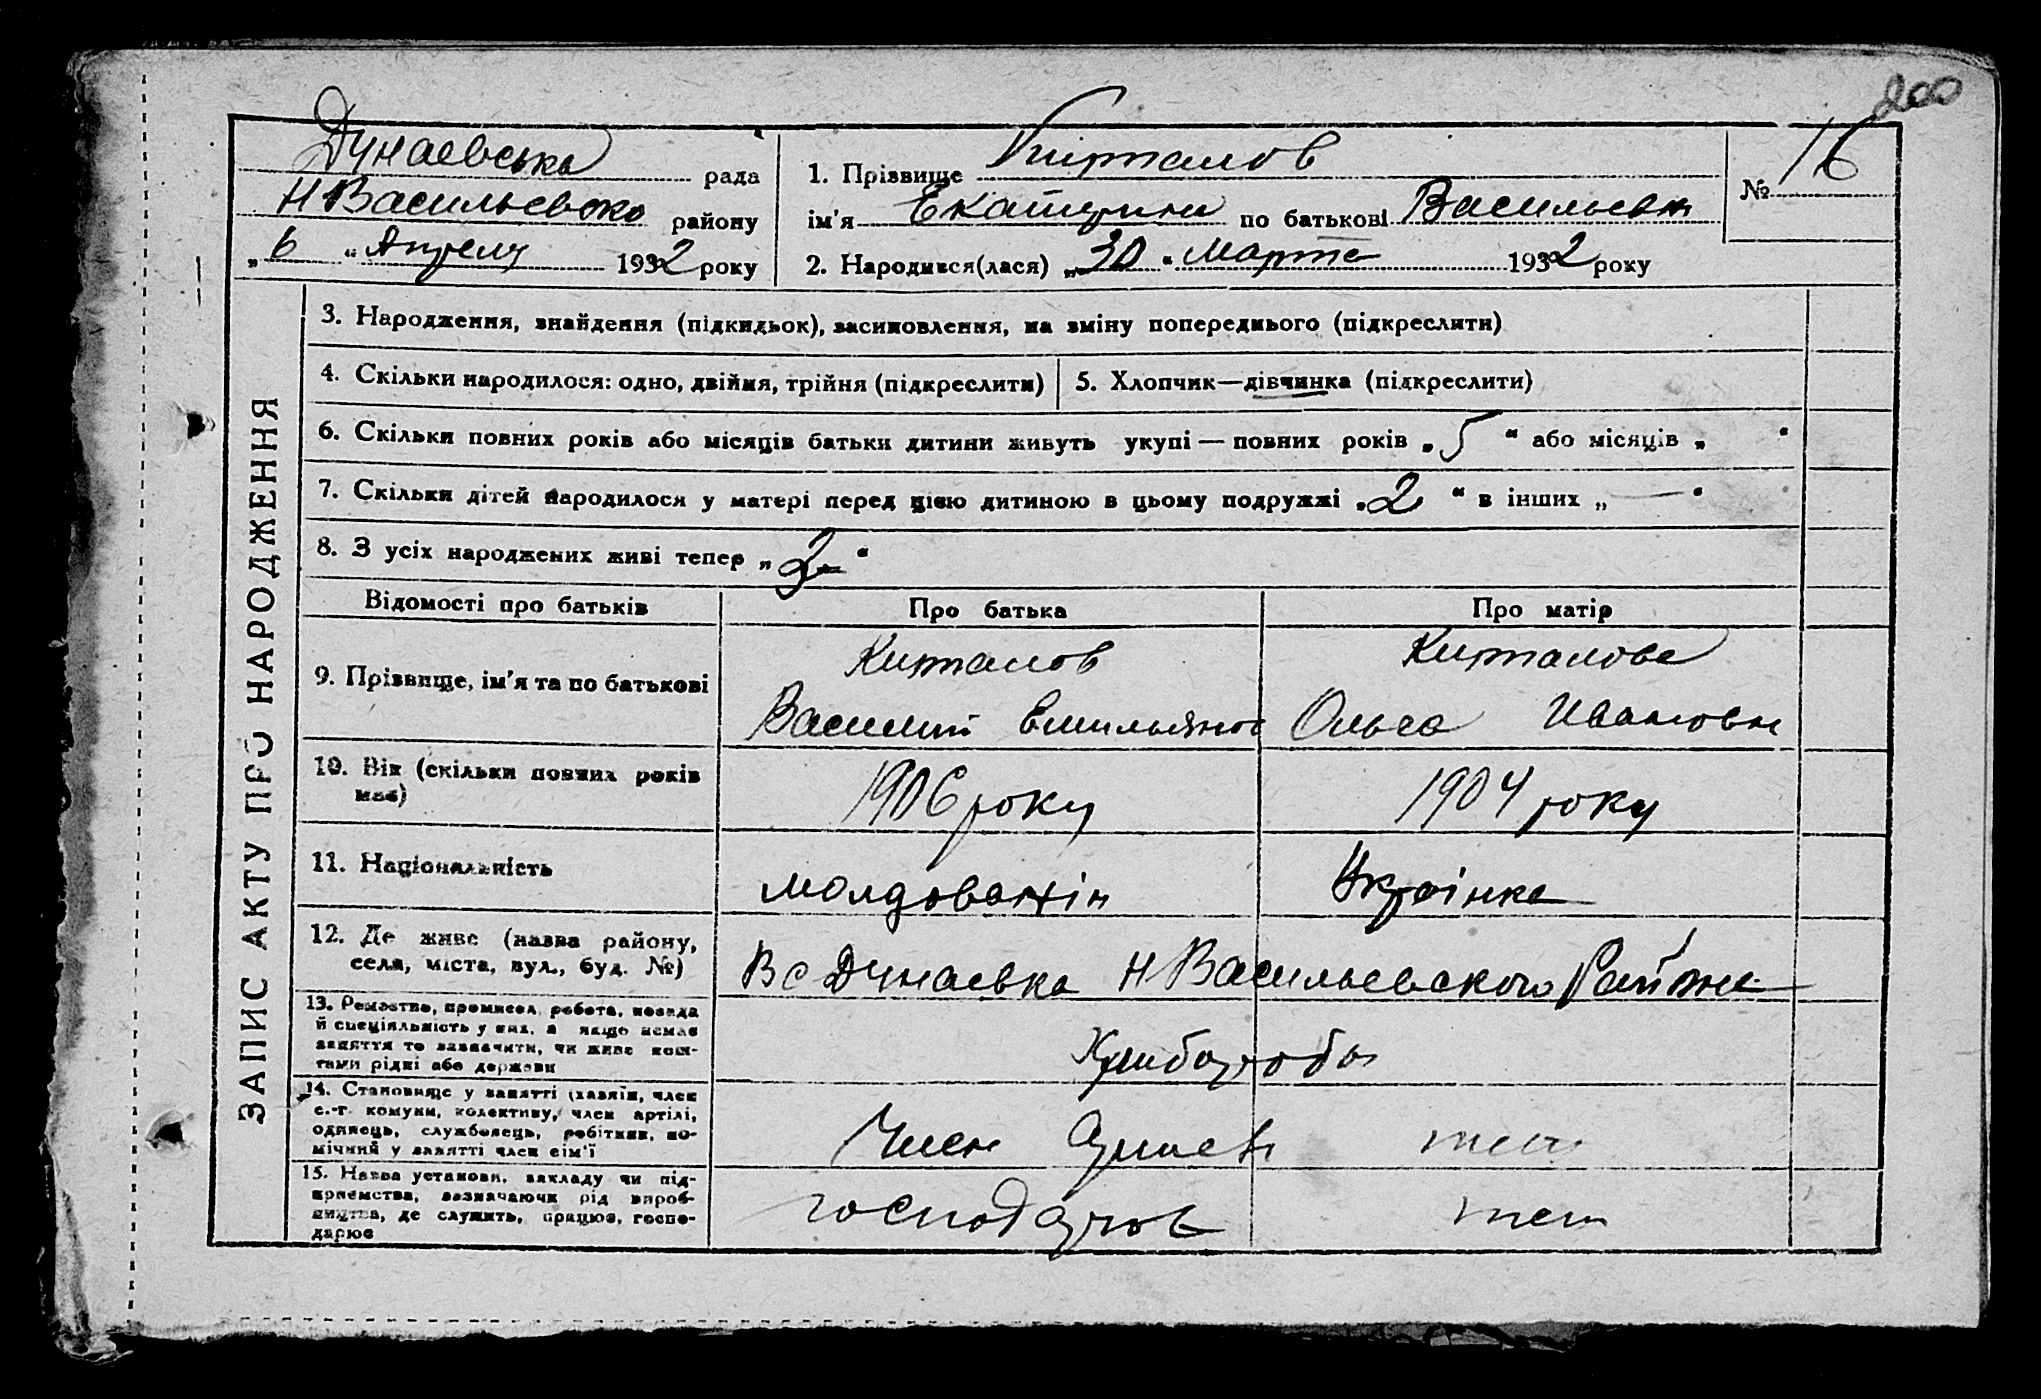 200
Дунаевська рада
Н Васильевско району
„ 6 “ Апреля 1932 року
1. Прізвище Киртанов
ім'я Екатерини по батькові Васильевн
2. Народився(лася) „ 30 “ Марта 1932 року
№ 16
ЗАПИС АКТУ ПРО НАРОДЖЕННЯ
3. Народження, знайдення (підкидьок), засиновлення, на зміну попереднього (підкреслити)
4. Скільки народилося: одно, двійня, трійня (підкреслити)
5. Хлопчик—дівчинка (підкреслити)
6. Скільки повних років або місяців батьки дитини живуть укупі — повних років „ 5 “ або місяців „ “
7. Скільки дітей народилося у матері перед цією дитиною в цьому подружжі „ 2 “ в інших „ — “
8. З усіх народжених живі тепер „ 2 “
Відомості про батьків Про батька Про матір
9. Прізвище, ім'я та по батькові
Василий Емильянов
Ольга Ивановн
10. Вік (скільки повних років має)
1906 року
1904 року
11. Національність
молдованін
Украінка
12. Де живе (назва району,
села, міста, вул., буд. №)
В с Дунаевка Н Васильевского Района
13. Ремество, промисел, робота, посада
й спеціяльність у них, а якщо немає
заняття то зазначити, чи живе кош-
тами рідні або держави
Хлібороби
14. Становище у занятті (хазяїн, член
с.-г. комуни, колективу, член артілі,
одинець, службовець, робітник, по-
мічний у занятті член сім'ї
Член
15. Назва установи, закладу чи під-
приємства, зазначаючи рід вироб-
ництва, де служить, працює, госпо-
дарює